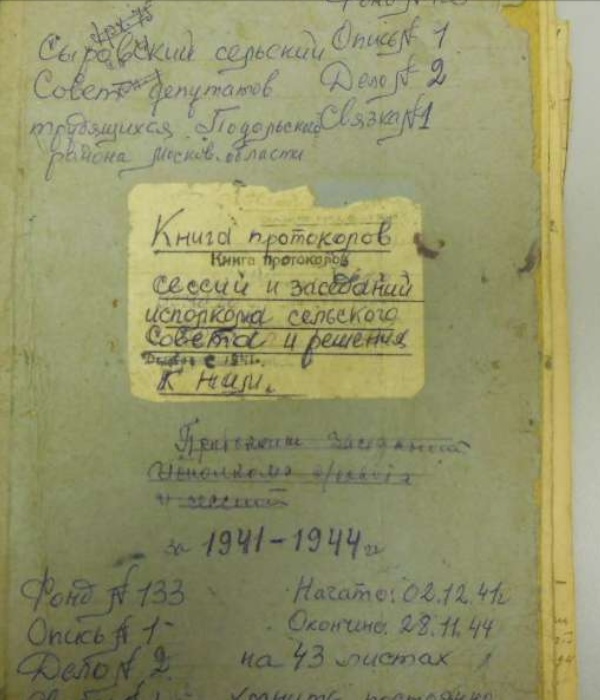 Фонд №
Сыровский сельский
Опись № 1
Совет депутатов
Дело № 2
трудящихся Подольский
Связка № 1
района москов. области
Книга протокоров
Книга протокоров
сессий и заседаний
испоркома сельского
Совета и решения
с 1941г.
к ним.
Протоколы заседаний
Исполкома с/совета
и сессий
за 1941-1944 г
Фонд № 133
Начато: 02.12.41г
Опись № 1
Окончино. 28.11.44
Дело № 2
на 43 листах
хранить постоянно